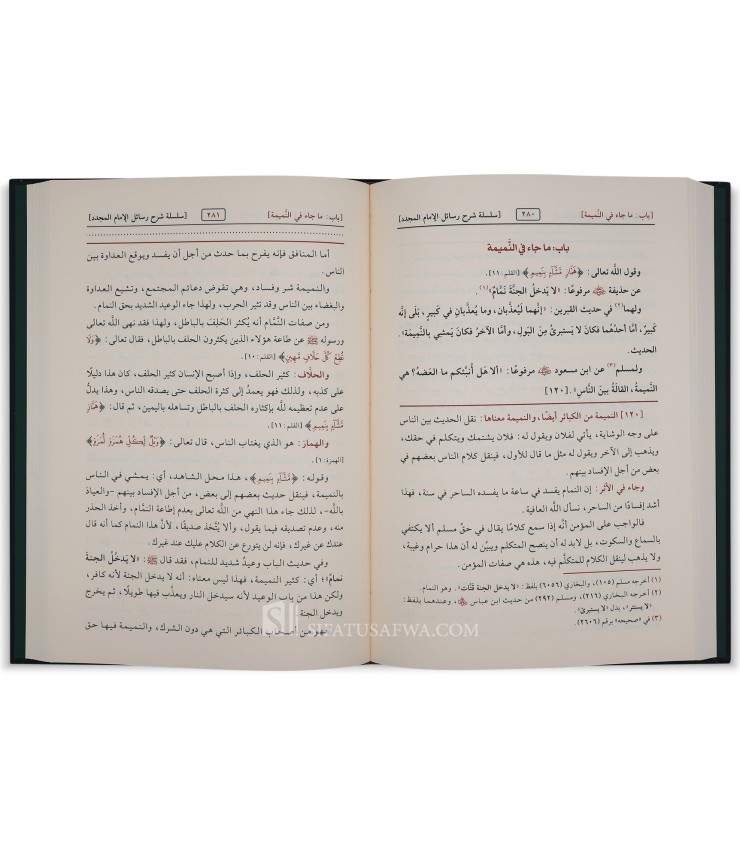 [باب: ما جاء في النَّميمة] ٢٨٠ [سلسلة شرح رسائل الإمام المجدد]
باب: ما جاء في النَّميمة
وقول الله تعالى: ﴿هَمَّازٍ مَشَّاءٍ بِنَمِيمٍ﴾ [القلم: ١١].
عن حذيفة ﷺ مرفوعًا: «لا يَدخلُ الجنَّةَ نَمَّامٌ»(١).
ولهما(٢) في حديث القبرين: «إنَّهما لَيُعذَّبان، وما يُعذَّبانِ في كَبيرٍ، بَلَى إنَّه
كَبيرٌ، أمَّا أحدُهما فكانَ لا يَستبرئُ مِنَ البَولِ، وأمَّا الآخرُ فكانَ يَمشي بالنَّميمةِ».
الحديث.
ولمسلم(٣) عن ابن مسعود مرفوعًا: «ألا هَل أُنبِّئكم ما العَضهُ؟ هي
النَّميمةُ، القالَةُ بينَ النَّاسِ». [١٢٠]
[١٢٠] النميمة من الكبائر أيضًا، والنميمة معناها: نقل الحديث بين الناس
على وجه الوشاية، يأتي لفلان ويقول له: فلان يشتمك ويتكلم في حقك،
ويذهب إلى الآخر ويقول له مثل ما قال للأول، فينقل كلام الناس بعضهم في
بعض من أجل الإفساد بينهم.
وجاء في الأثر: إن النمام يفسد في ساعة ما يفسده الساحر في سنة، فهذا
أشد إفسادًا من الساحر، نسأل الله العافية.
فالواجب على المؤمن أنَّه إذا سمع كلامًا يقال في حقِّ مسلم ألا يكتفي
بالسماع والسكوت، بل لابد له أن ينصح المتكلم ويبيِّن له أن هذا حرام وغيبة،
ولا يذهب لينقل الكلام للمتكلَّم فيه، هذه هي صفات المؤمن.
(١) أخرجه مسلم (١٠٥)، والبخاري (٦٠٥٦) بلفظ: «لا يدخل الجنة قتَّات». وهو النمام.
(٢) أخرجه البخاري (٢١٦)، ومسلم (٢٩٢) من حديث ابن عباس، وعندهما بلفظ:
«لا يستتر»، بدل «لا يستبرئ».
(٣) في «صحيحه» برقم (٢٦٠٦).
[باب: ما جاء في النَّميمة] ٢٨١ [سلسلة شرح رسائل الإمام المجدد]
أما المنافق فإنه يفرح بما حدث من أجل أن يفسد ويوقع العداوة بين
الناس.
والنميمة شر وفساد، وهي تقوض دعائم المجتمع، وتشيع العداوة
والبغضاء بين الناس وقد تثير الحرب، ولهذا جاء الوعيد الشديد بحق النمام.
ومن صفات النَّمَّام أنه يُكثر الحَلِف بالباطل، ولهذا فقد نهى الله تعالى
ورسوله ﷺ عن طاعة هؤلاء الذين يكثرون الحلف بالباطل، فقال تعالى: ﴿وَلَا
تُطِعْ كُلَّ حَلَّافٍ مَهِينٍ﴾ [القلم: ١٠].
والحلَّاف: كثير الحلف، وإذا أصبح الإنسان كثير الحلف، كان هذا دليلًا
على كذبه، ولذلك فهو يعمدُ إلى كثرة الحلف حتى يصدقه الناس، وهذا يدلُّ
على عدم تعظيمه لله بإكثاره الحلف بالباطل وتساهله باليمين، ثم قال: ﴿هَمَّازٍ
مَشَّاءٍ بِنَمِيمٍ﴾ [القلم: ١١].
والهماز: هو الذي يغتاب الناس، قال تعالى: ﴿وَيْلٌ لِكُلِّ هُمَزَةٍ لُمَزَةٍ﴾
[الهمزة: ١].
وقوله: ﴿مَشَّاءٍ بِنَمِيمٍ﴾، هذا محل الشاهد، أي: يمشي في الناس
بالنميمة، فينقل حديث بعضهم إلى بعض، من أجل الإفساد بينهم -والعياذ
بالله-، لذلك جاء هذا النهي من الله تعالى بعدم إطاعة النَّمَّام، وأخذ الحذر
منه، وعدم تصديقه فيما يقول، وألا يُتَّخذ صديقًا، لأنَّ هذا النمام كما أنه قال
عندك عن غيرك، فإنه لن يتورع عن الكلام عليك عند غيرك.
وفي حديث الباب وعيدٌ شديد للنمام، فقد قال ﷺ: «لا يَدخُلُ الجنةَ
نمامٌ»؛ أي: كثير النميمة، فهذا ليس معناه: أنه لا يدخل الجنة لأنه كافر،
ولكن هذا من باب الوعيد لأنه سيدخل النار ويعذَّب فيها طويلًا، ثم يخرج
ويدخل الجنة
من أصحاب الكبائر التي هي دون الشرك، والنميمة فيها حق
SIFATUSAFWA.COM